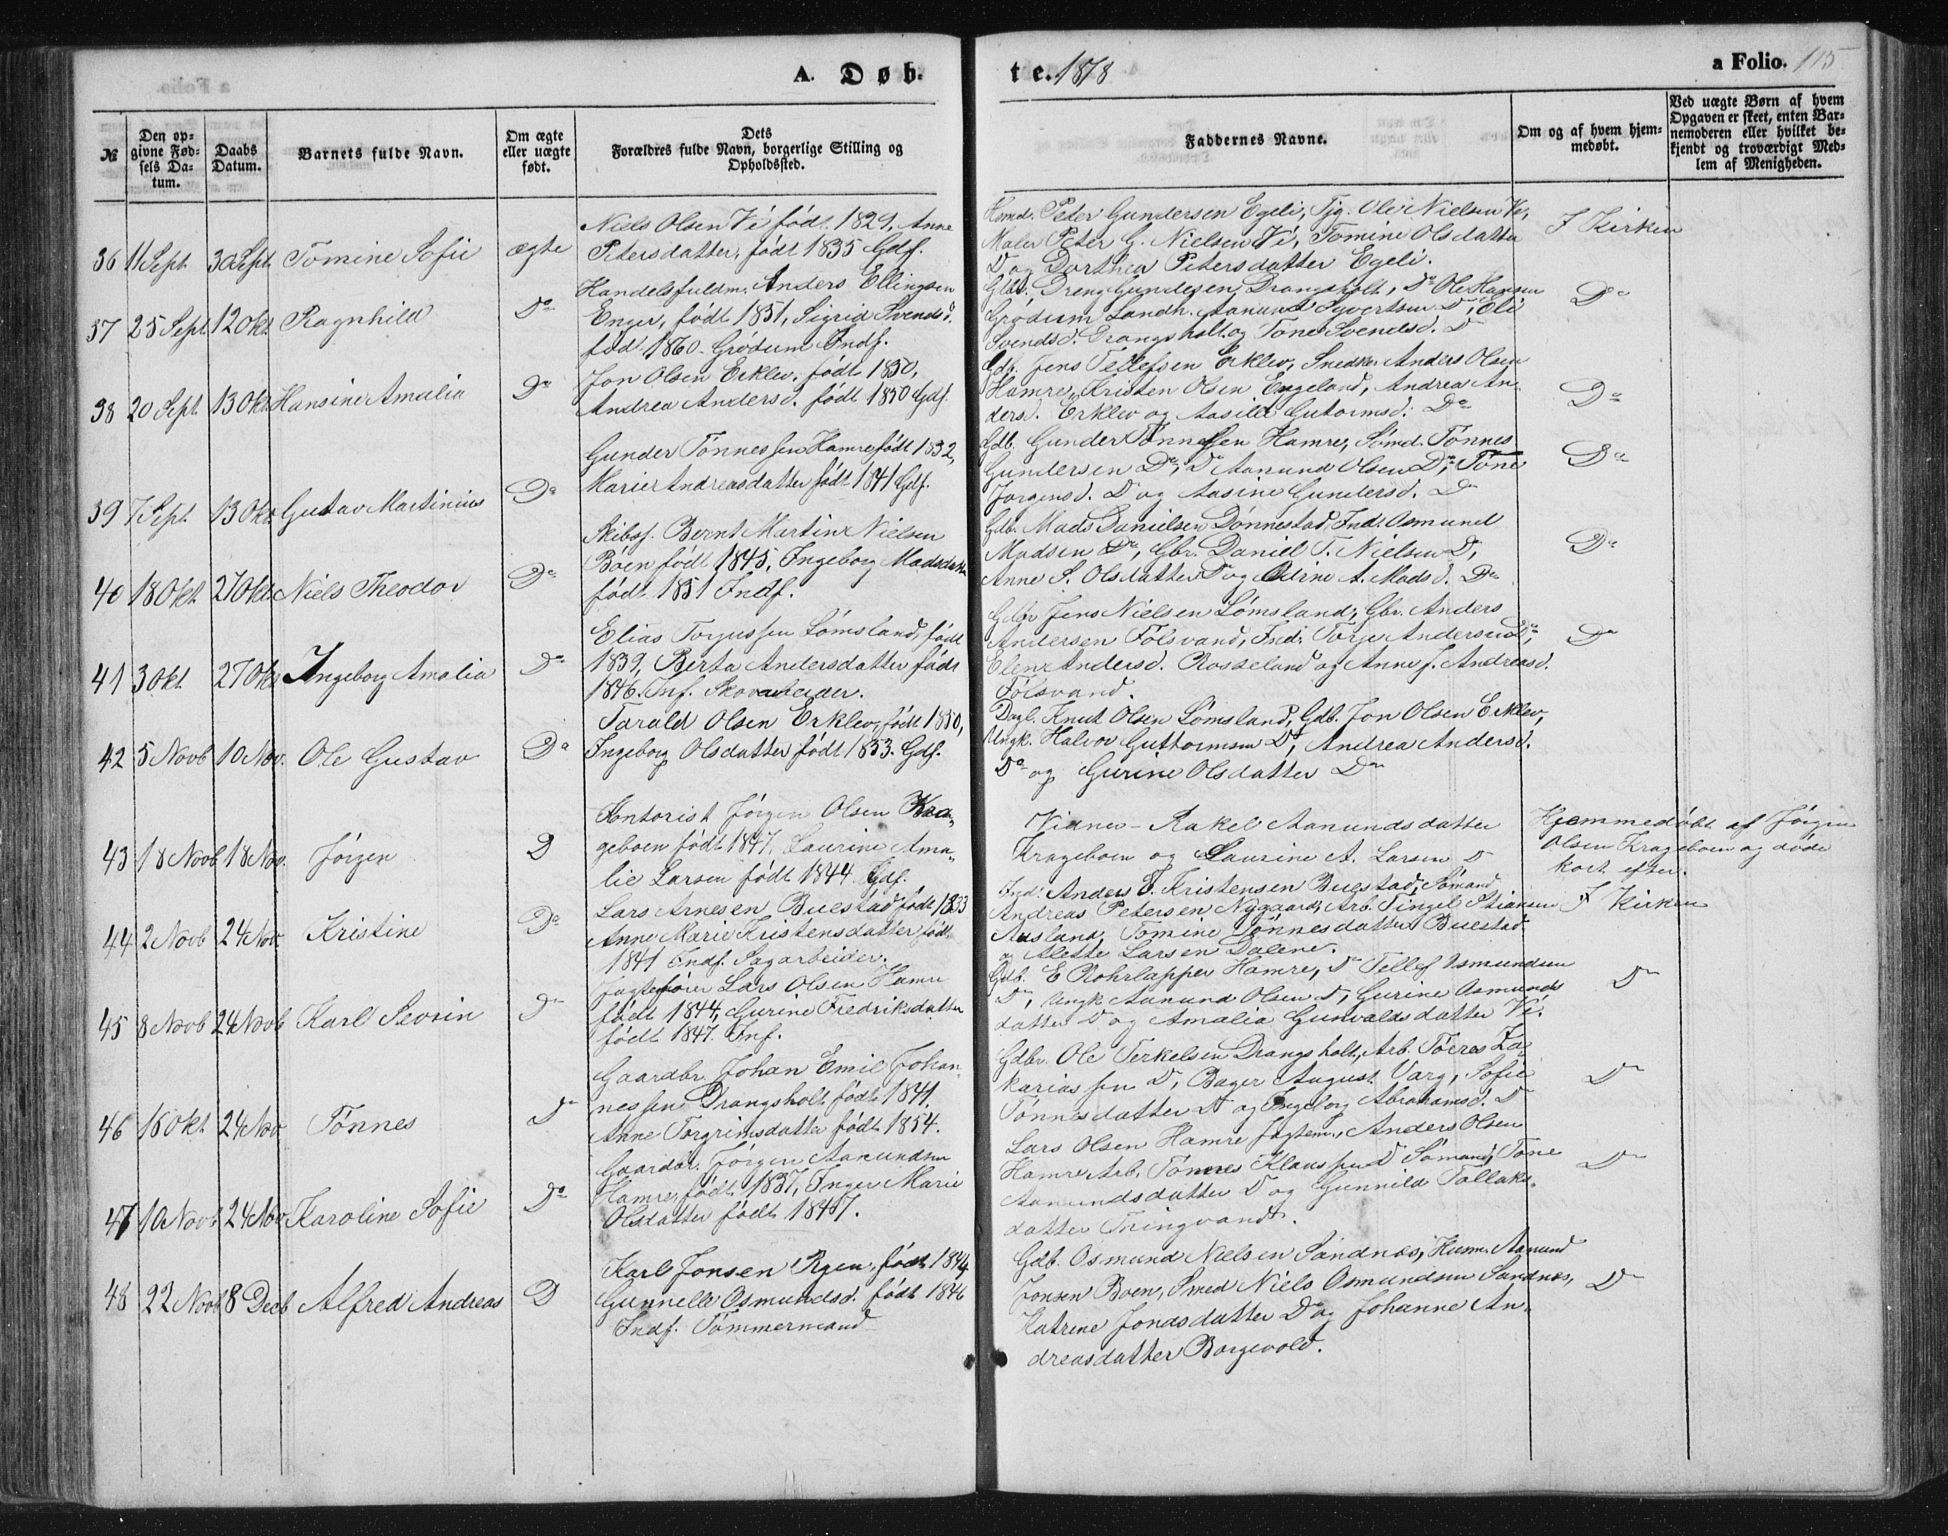 A. Døb-
te. 1878
a Folio. 115
№
Den op-
givne Fød-
sels Da-
tum.
Daabs
Datum.
Barnets fulde Navn.
Om ægte
eller uægte
født.
Dets
Forældres fulde Navn, borgerlige Stilling og
Opholdssted.
Faddernes Navne.
Om og af hvem hjem-
medøbt.
Ved uægte Børn af hvem
Opgaven er skeet, enten Bar-
nemoderen eller hvilket be-
kjendt og troværdigt Med-
lem af Menigheden.
36 11 Sept 30 Sept. Tomine Sofie ægte
Niels Olsen Vé født 1829, Anne
Petersdatter, født 1835 Gdf.
Peder Gundersen Egeli, Tjg. Ole Nielsen Ve,
Maler Peter G. Nielsen Vé, Tomine Olsdatter
D og Dorthea Petersdatter Egeli.
I Kirken
37 25 Sept. 12 Okt Ragnhild Do
Handelsfuldm. Anders Ellingsen
Enger, født 1851, Sigrid Svendsd.
fød 1860. Grødum Indf.
Gdb. Dreng Gundesen Drangsholt, Do Ole Hansen
Grødum Landh. Aanund Syvertsen D, Oli
Svendsd. Drangsholt og Tone Svendsd. D
Do
38 20 Sept. 13 Okt Hansine Amalia Do
Jon Olsen Erklev, født 1850,
Andrea Andersd. født 1850 Gdf.
Gdb. Jens Tellefsen Erklev, Snedker Anders Olsen
Hamre, Kristen Olsen Engeland, Andrea An-
dersd. Erklev og Aasild Gutormsd. Do
Do
39 7 Sept. 13 Okt. Gustav Martinius Do
Gunder Tønnessen Hamre født 1832,
Marie Andreasdatter født 1841 Gdf.
Gdb. Gunder Tønnessen Hamre, Sømd. Tønnes
Gundersen Do, Do Aanund Olsen Do, Tone
Jørgensd. D og Aasine Gundersd. Do
Do
40 18 Okt. 27 Okt. Niels Theodor Do
Skibsf. Bernt Martin Nielsen
Bøen født 1845, Ingeborg Madsdatter
født 1851 Indf.
Gdb. Mads Danielsen Dønnestad, Ind. Osmund
Madsen Do, Gbr. Daniel T. Nielsen D,
Anne S. Olsdatter D og Odine A. Madsd. Do
Do
41 3 Okt. 27 Okt Ingeborg Amalia Do
Elias Torgussen Lømsland, født
1839, Berta Andersdatter født
1846. Inf. Skovarbeider.
Gdbr Jens Nielsen Lømsland, Gbr. Anders
Andersen Følsvand, Ind. Torje Andersen D,
Elen Andersd. Rosseland og Anne J. Andreasd.
Følsvand.
Do
42 5 Novb 10 Nov. Ole Gustav Do
Tarald Olsen Erklev, født 1850,
Ingeborg Olsdatter født 1853. Gdf.
Dagl. Knut Olsen Lømsland, Gdb. Jon Olsen Erklev,
Ungk. Halvor Guttormsen D, Andrea Andersd.
Do og Gurine Olsdatter Do
43 18 Novb 18 Nov. Jørgen D
Kontorist Jørgen Olsen Kra-
geboen født 1847, Laurine Ama-
lie Larsen født 1844 Gdf.
Vidner – Rakel Aanundsdatter
Krageboen og Laurine A. Larsen D
Hjemmedøbt af Jørgen
Olsen Krageboen og døde
kort efter.
44 2 Novb 24 Nov. Kristine Do
Lars Arnesen Buestad født 1833
Anne Marie Kristensdatter født
1841 Indf. Sagarbeider.
Ind. Anders T. Kristensen Buestad, Sømand
Andreas Petersen Nygaard, Arb. Tingel Stiansen
Ausland, Tomine Tønnesdatter Buestad
og Alette Larsen Dalene.
I Kirken
45 8 Novb 24 Novb Karl Severin Do
Jagtefører Lars Olsen Hamre
født 1844, Gurine Fredriksdatter
født 1847. Inf.
Gdb. E Rohrlapper Hamre, Do Tellef Osmundsen
D, Ungk Aanund Olsen D, Gurine Osmunds
datter D og Amalia Gunvaldsdatter Vé.
Do
46 16 Okt 24 Nov Tønnes Do
Gaardbr. Johan Emil Johan-
nessen Drangsholt født 1841.
Anne Torgrimsdatter født 1854.
Gdbr. Ole Terkelsen Drangsholt, Arb. Tøeres Za-
kariassen D, Bager August Varg, Sofie
Tønnesdatter D og Ingeborg Abrahamsd. D
Do
47 10 Novb 24 Nov Karoline Sofie Do
Gaardbr. Jørgen Aanundsen
Hamre, født 1837, Inger Marie
Olsdatter født 1847.
Lars Olsen Hamre Jagtem., Anders Olsen
Hamre, Arb. Tønnes Klaussen D Sømand, Tone
Aanundsdatter D og Gunnild Tallaks-
datter Tringvand.
Do
48 22 Novb 8 Decb Alfred Andreas D
Karl Jonsen Ryen, født 1844
Gunnelle Osmundsd. født 1846
Indf. Tømmermand
Gdb. Osmund Nielsen Sandnæs, Husm. Aanund
Jonsen Boen, Smed Niels Osmundsen Sandnæs,
Katrine Jondsdatter Do og Johanne An-
dreasdatter Borgevold.
Do